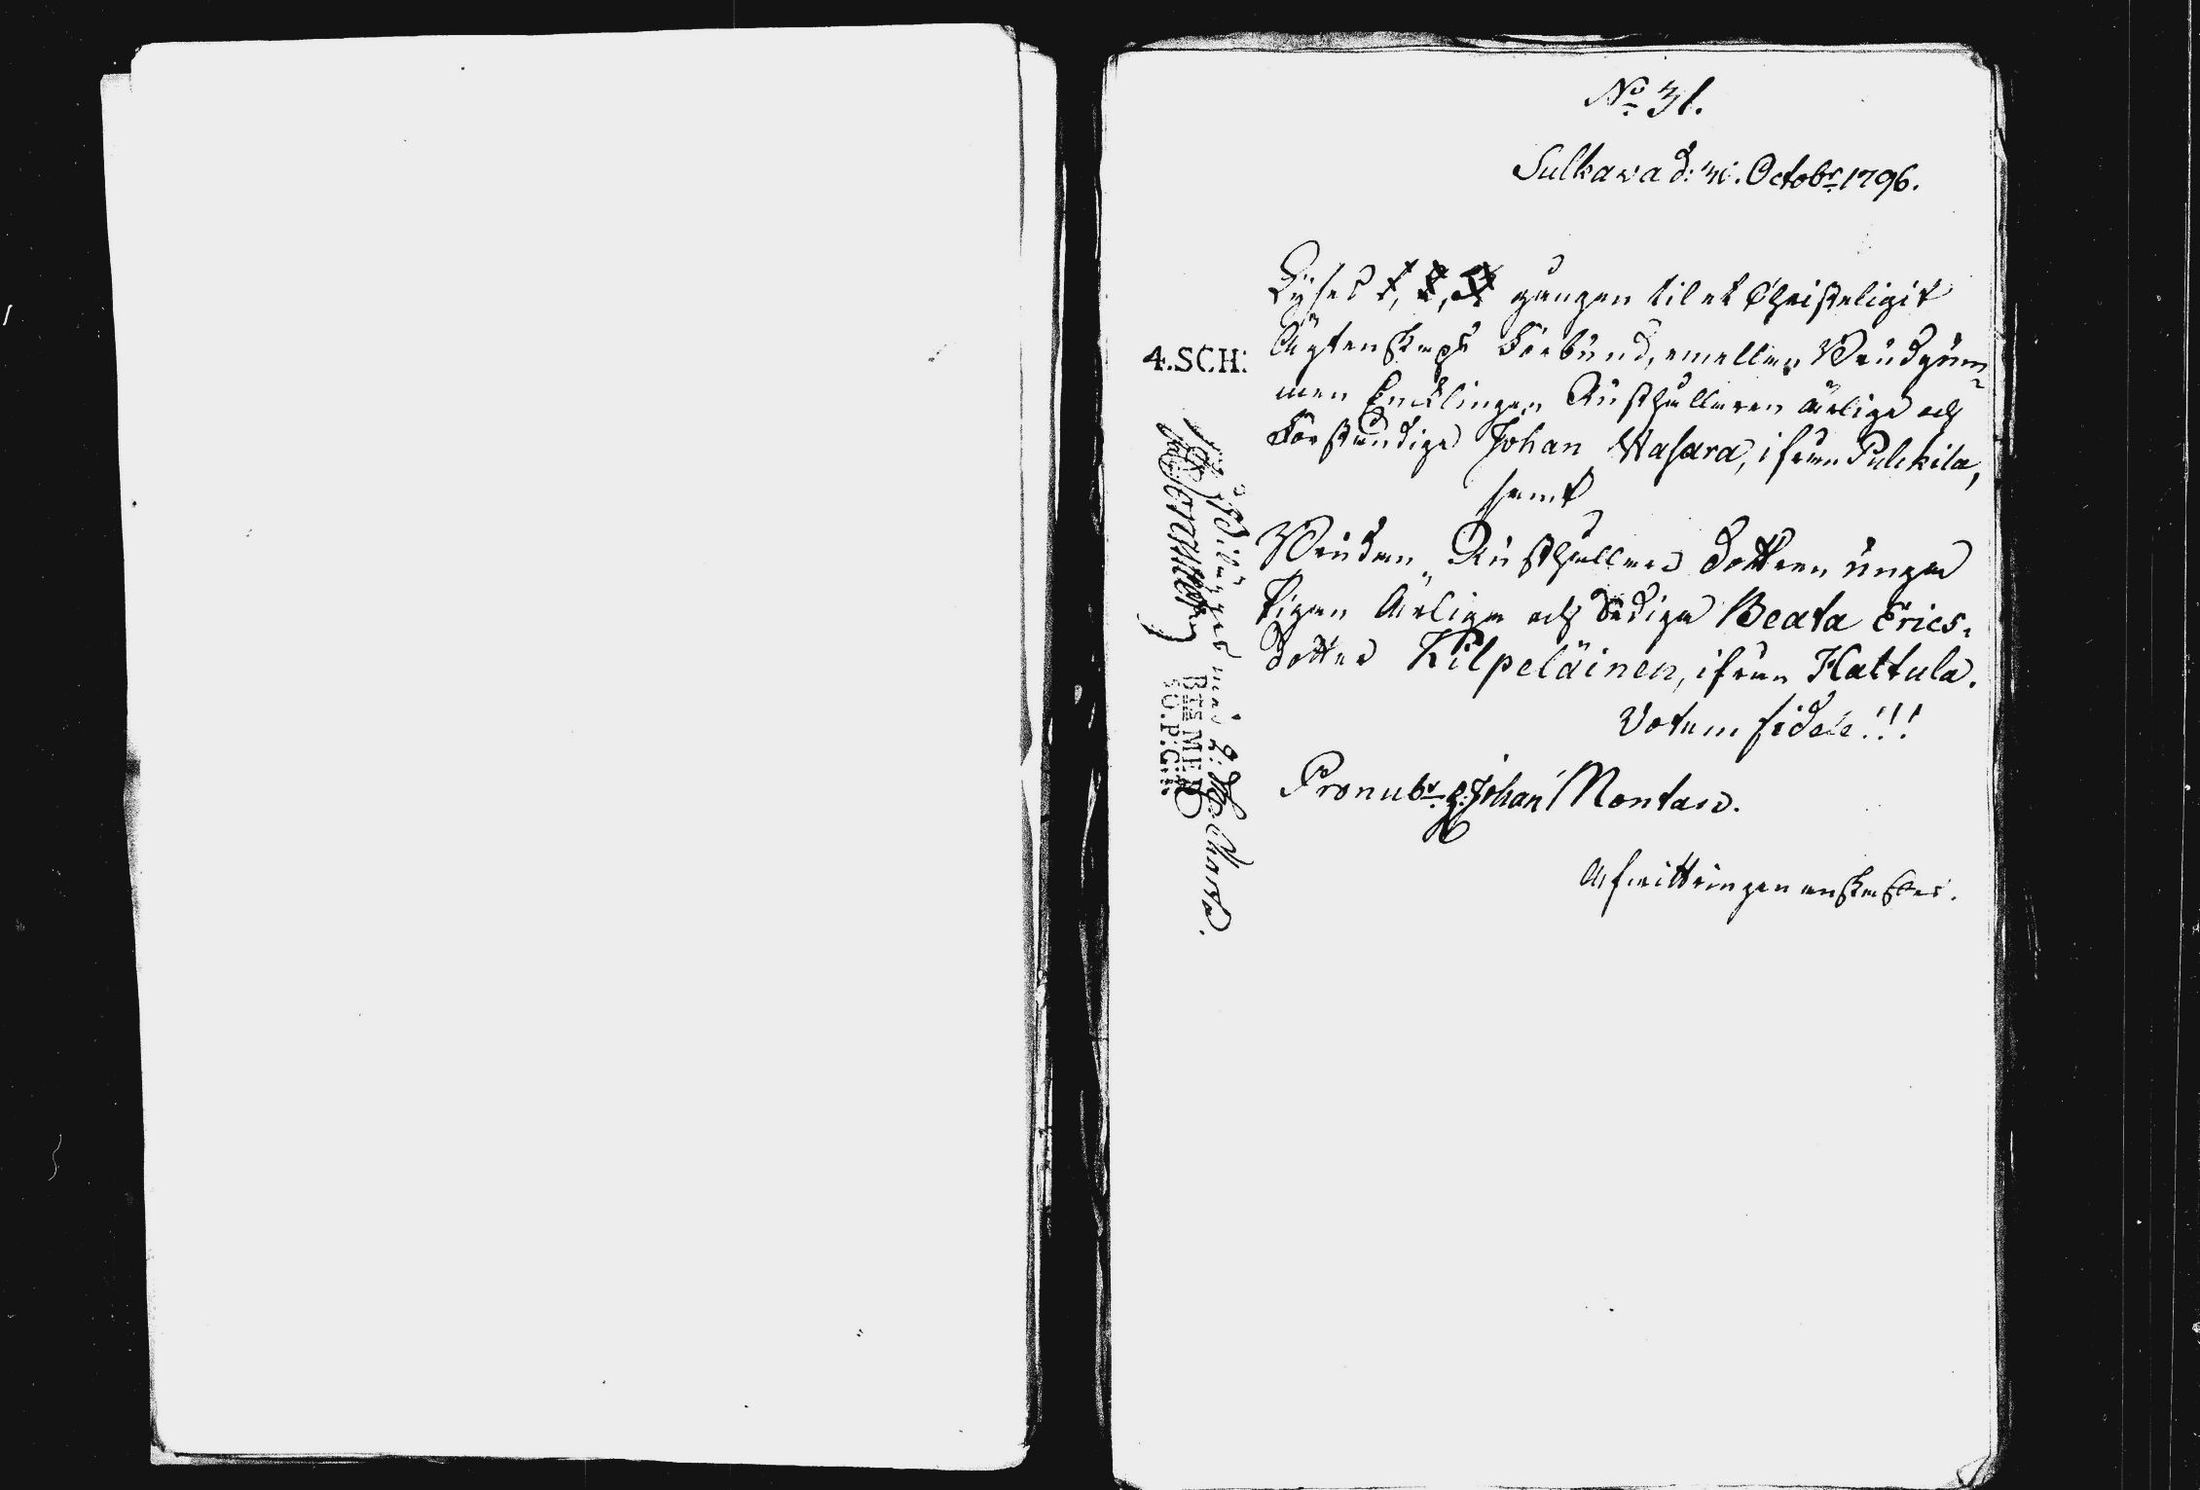 No 31.
Sulkava d: 30. Octobr 1796.
Lyses 1, 2, 3 gången til et Christeligit
Ägtenskaps Förbund, emellan Brudgum=
men Enklingen Rusthållaren ärlige och
Förståndige Johan Wasara, ifrån Pulckila,
samt
Bruden, Rusthållares dottren unga
Pigan Ärliga och Sediga Beata Erics=
dotter Kilpeläinen, ifrån Kattula.
Votum fidele!!!
Pronubr: Johan Montan.
Afwittringen
4.SCH:
BTS MED